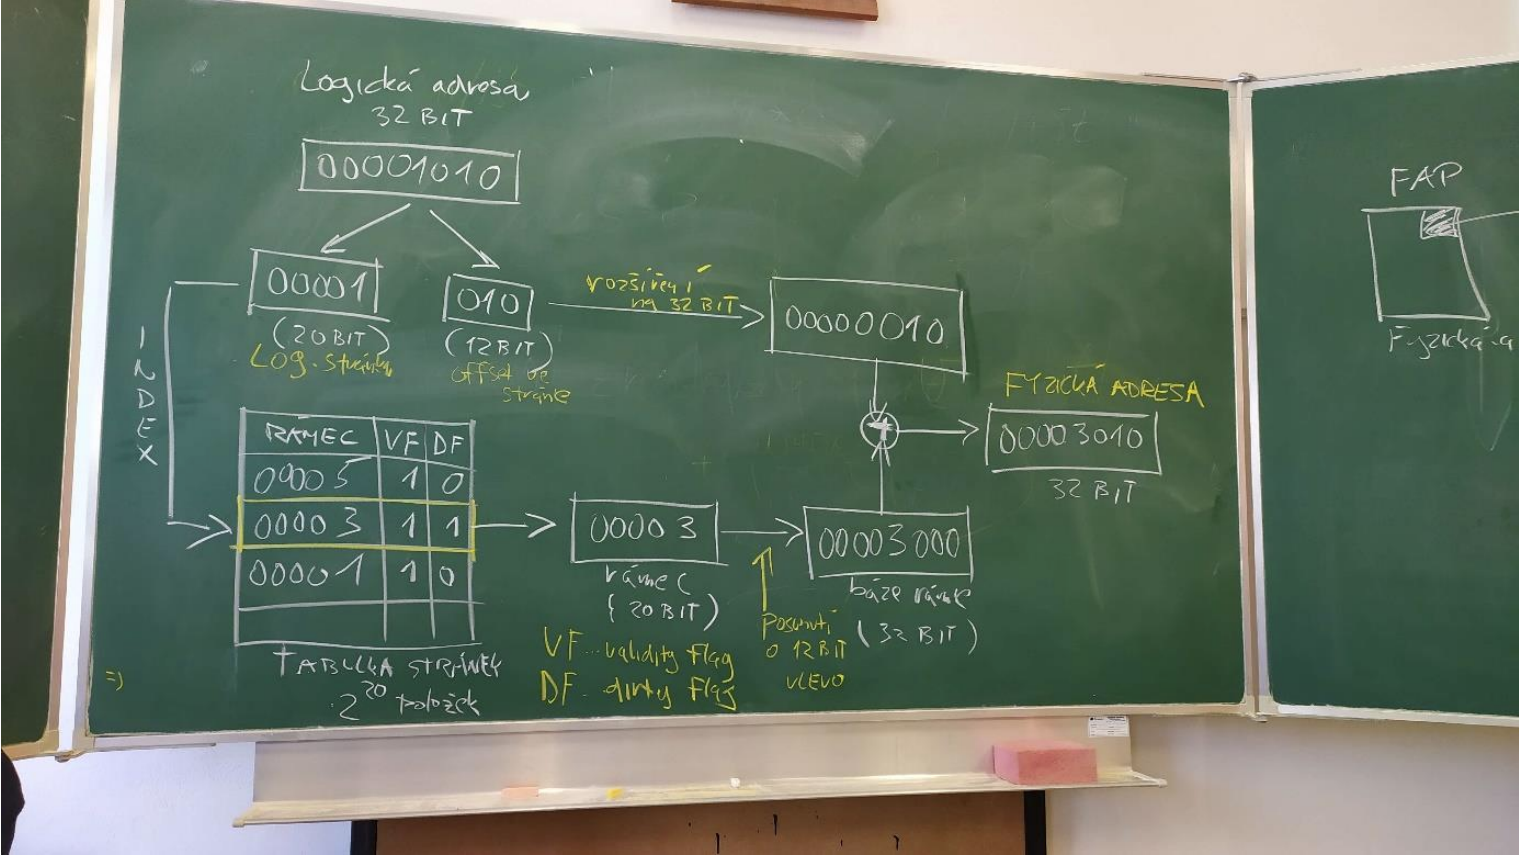 Logická adresa
32 BIT
00001010
00001
(20 BIT)
Log. stránka
010
(12 BIT)
offset ve
stránce
rozšíření
na 32 BIT
00000010
INDEX
RÁMEC VF DF
00005 1 0
00003 1 1
00001 1 0
TABULKA STRÁNEK
2^20 položek
00003
rámec
(20 BIT)
VF...validity flag
DF...dirty flag
Posunutí
o 12 BIT
VLEVO
00003000
báze rámce
(32 BIT)
+
FYZICKÁ ADRESA
00003010
32 BIT
=)
FAP
Fyzická a